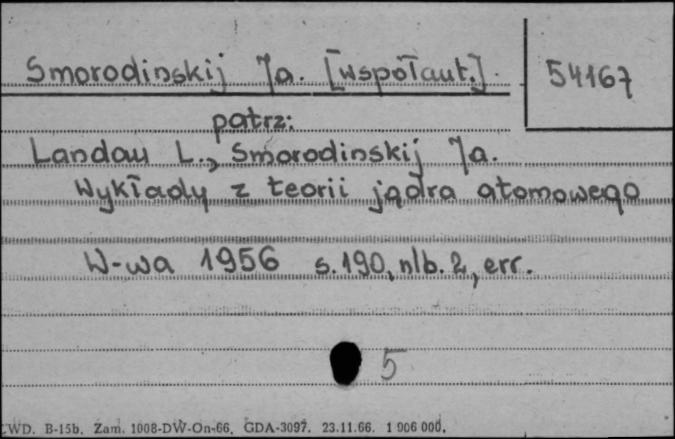 Smorodinskij Ja. [współaut.]
54167
patrz:
Landau L., Smorodinskij Ja.
Wykłady z teorii jądra atomowego
W-wa 1956 s.190, nlb. 2, err.
5
CWD. B-15b. Zam. 1008-DW-On-66. GDA-3097. 23.11.66. 1 906 000.